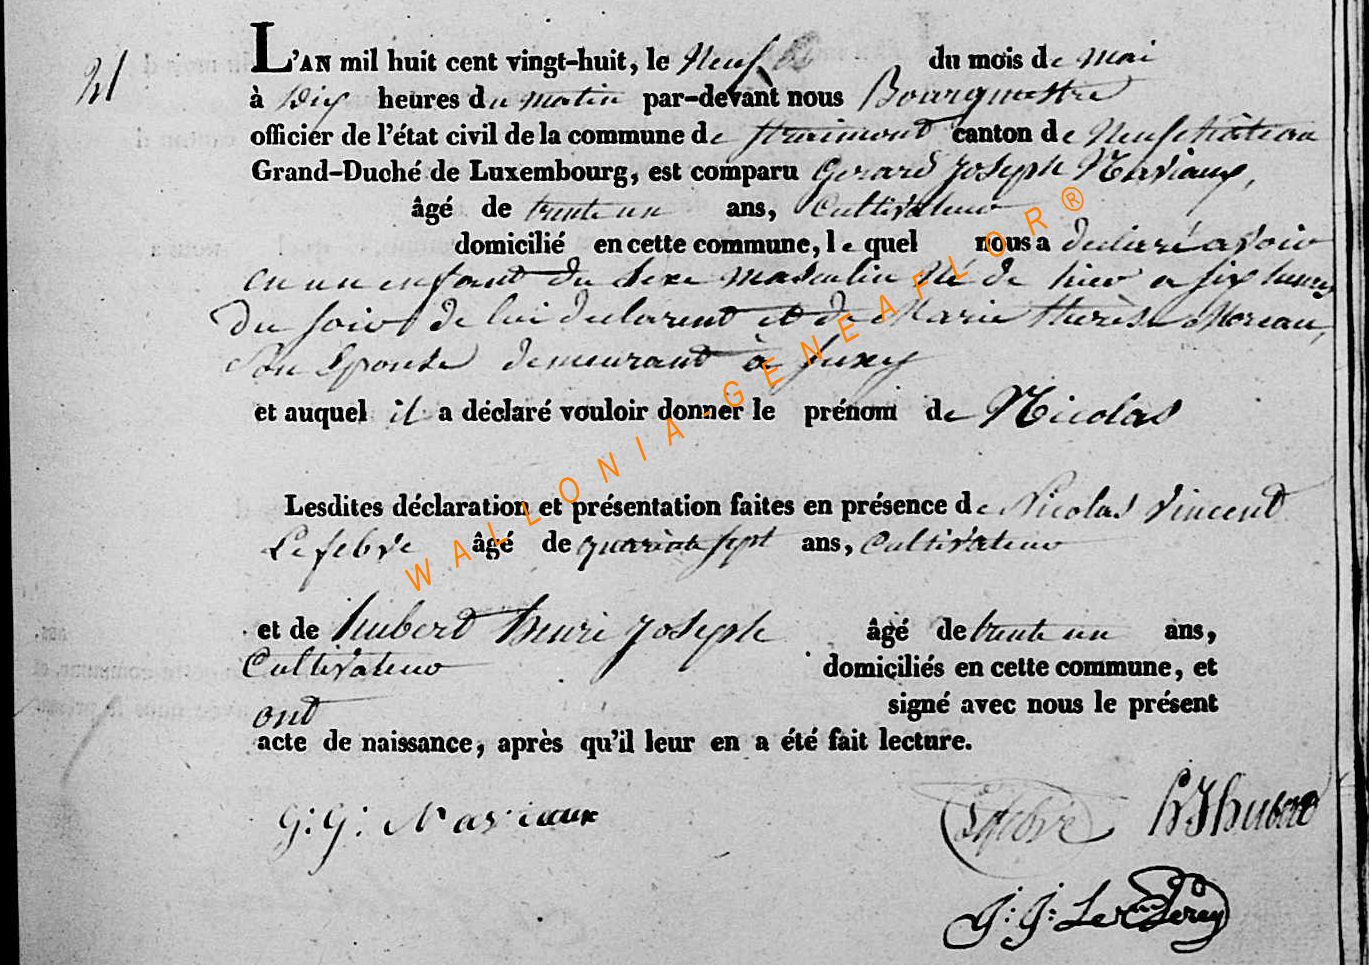 21
L'AN mil huit cent vingt-huit, le Neuf du mois de mai
à Dix heures du matin par-devant nous Bourgmestre
officier de l'état civil de la commune de Straimont canton de Neufchâteau
Grand-Duché de Luxembourg, est comparu Gerard Joseph Naviaux,
âgé de trente un ans, Cultivateur
domicilié en cette commune, le quel nous a declaré avoir
eu un enfant du sexe masculin né de hier a six heures
du soir de lui declarent et de Marie thérèse Moreau,
son Epouse demeurant à Suxy
et auquel il a déclaré vouloir donner le prénom de Nicolas
Lesdites déclaration et présentation faites en présence de Nicolas Vincent
Lefebve âgé de quarante sept ans, Cultivateur
et de hubert henri Joseph âgé de trente un ans,
Cultivateur domiciliés en cette commune, et
ont signé avec nous le présent
acte de naissance, après qu'il leur en a été fait lecture.
G: G: Naviaux Lefebve h J hubert
J: J: Le
WALLONIA-GENEAFLOR®